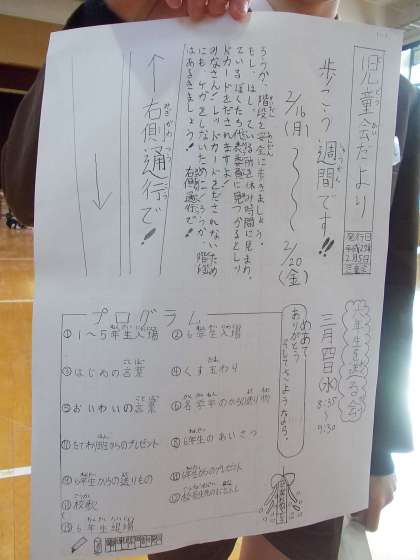 児童会だより
発行日
平成27年
2月5日
児童会
歩こう週間です!!
2/16(月)
2/20(金)
ろうか、階段を安全に歩きましょう。
もし、はしっている所を休み時間に見まわっ
ているぼくたち代表委員に見つかるとレッ
ドカードをだされますよ。
みなさん!レッドカードをだされないため
にも、ケガをしないためにろうか、階段
はあるきましょう! 右側通行で!
↑右側通行で!!
六年生を送る会
三月四日(水)
8:35
9:30
めあて
ありがとう
プログラム
①1～5年生入場
②6年生入場
③はじめの言葉
④くす玉わり
⑤おいわいの言葉
⑥各学年からの送り物
⑦たてわり班からのプレゼント
⑧6年生のあいさつ
⑨6年生からの送りもの
⑪校歌
⑬6年生退場